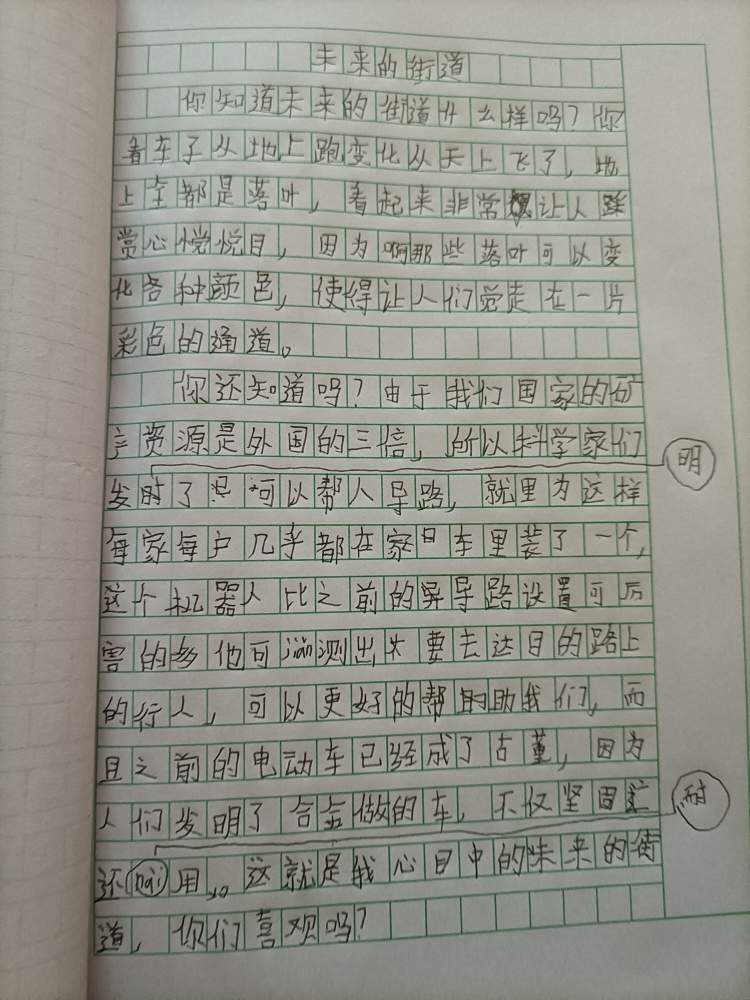 未来的街道
你知道未来的街道什么样吗？你
看车子从地上跑变化从天上飞了，地
上全都是落叶，看起来非常让人踩
赏心悦目，因为啊那些落叶可以变
化各种颜色，使得让人们觉走在一片
彩色的通道。
你还知道吗？由于我们国家的矿
产资源是外国的三倍，所以科学家们
发时了可以帮人导路，就里为这样
明
每家每户几乎都在家日车里装了一个，
这个机器人比之前的导路设置可厉
害的多他可测出要去达目的路上
的行人，可以更好的帮助我们，而
且之前的电动车已经成了古董，因为
人们发明了合金做的车，不仅坚固
耐
还nài用。这就是我心目中的未来的街
道，你们喜欢吗？